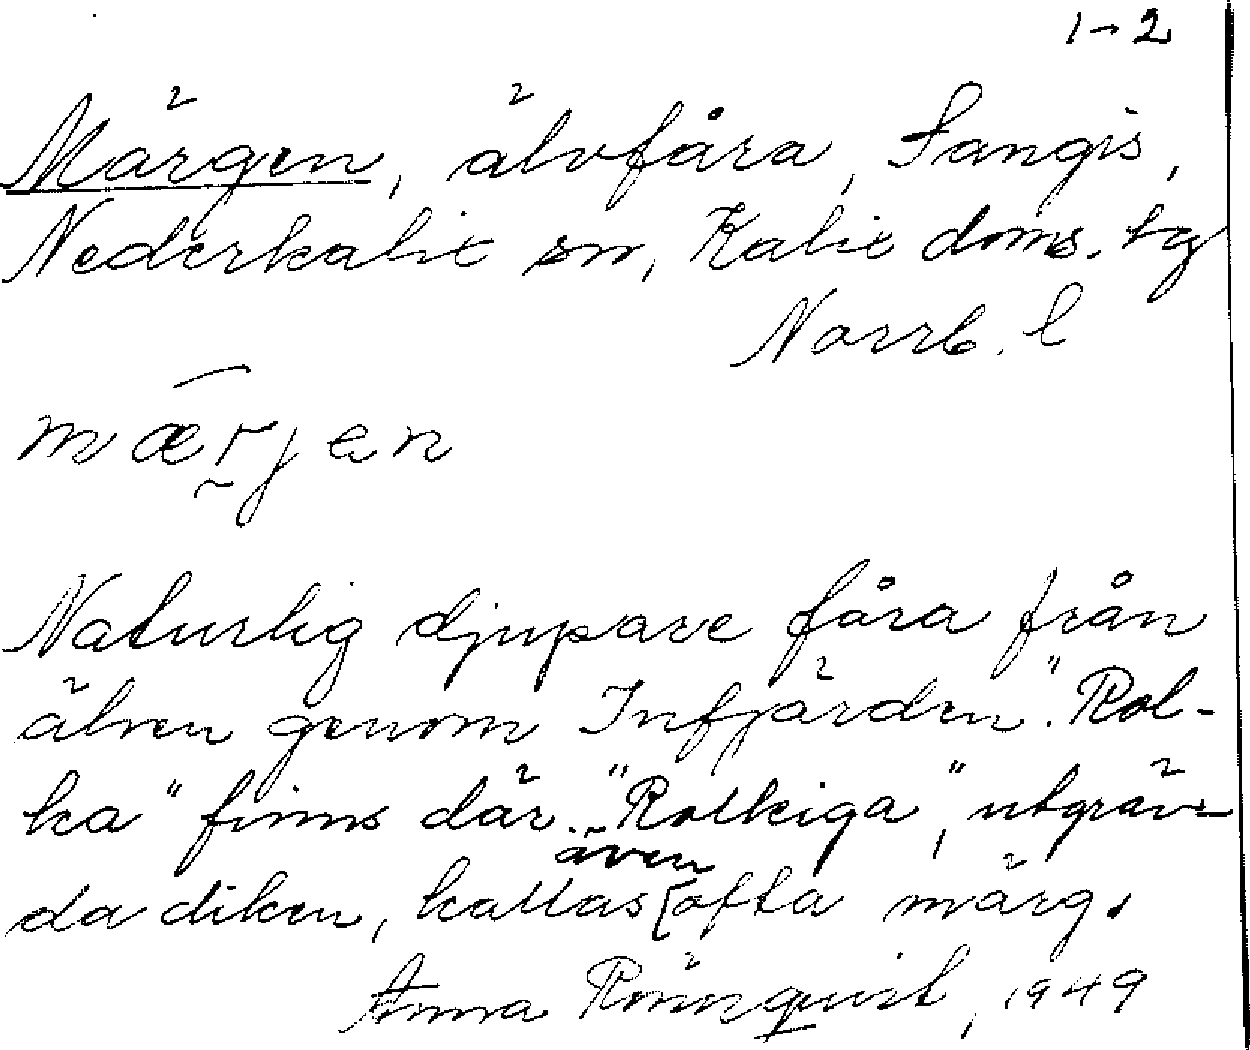 1→2
Märgen, älvfåra, Sangis,
Nederkalix sn, Kalix doms. tg
Norrb. l
mærjen
Naturlig djupare fåra från
älven genom Infjärden. "Rol-
ka" finns där. "Rolkiga", utgräv-
da diken, kallas [även ofta märg.
Anna Rönnqvist, 1949